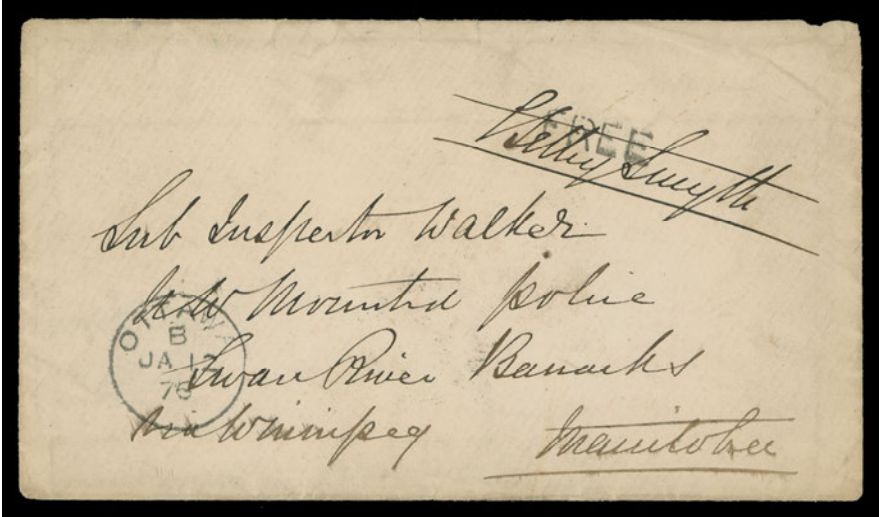 FREE
Selby Smyth
Sub Inspector Walker
N.W Mounted police
Swan River Barracks
via Winnipeg
Manitoba
OTTAWA
B
JA